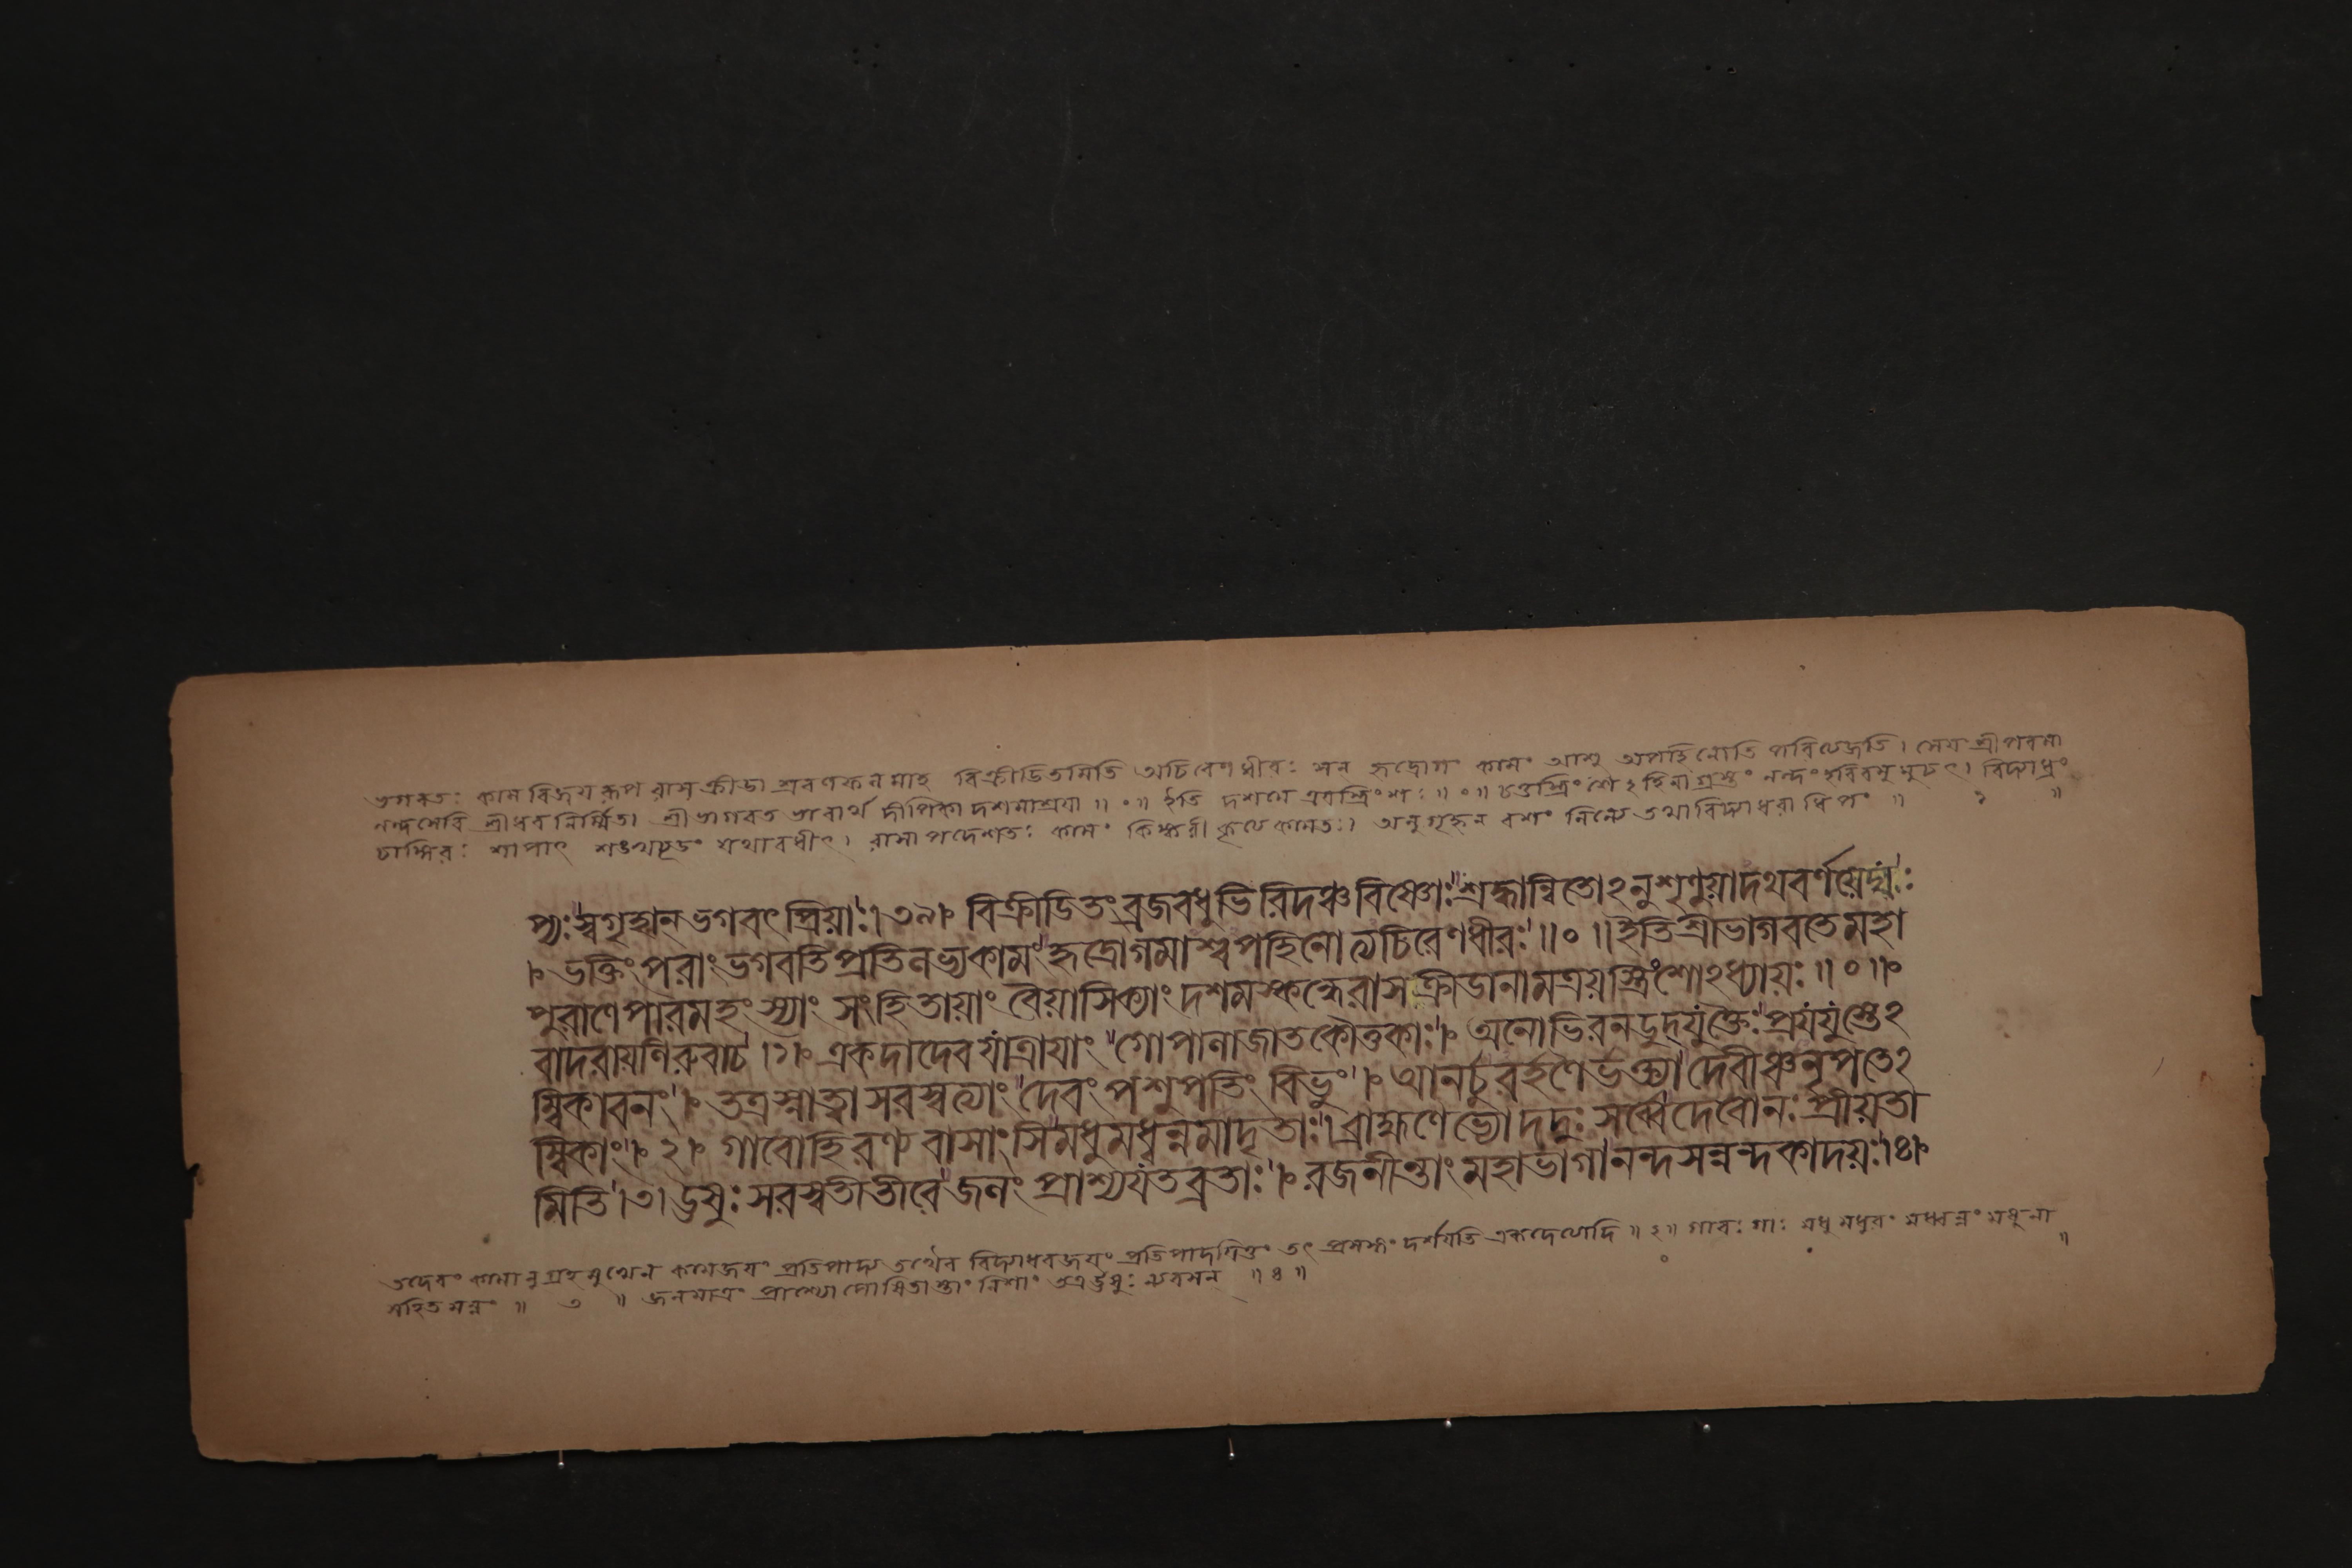 ভগবতঃ কাম বিজয় রূপ রাস ক্রীড়া শ্রবণ ফল মাহ বিক্রীডিতমিতি অচিরেণ ধীরঃ সন্ হৃদ্রোগং কামং আশু অপহিনোতি পরিত্যজতি।
নন্দসেবি শ্রীধর নির্ম্মিতা শ্রীভাগবত ভাবার্থ দীপিকা দশমাশ্রয়া ॥ ০ ॥ ইতি দশমে ত্রয়স্ত্রিংশঃ ॥ ০ ॥ চতুস্ত্রিংশেঽহিনা গ্রস্তং নন্দং হরিরমুমুচৎ।
চাঙ্গিরঃ শাপাৎ শঙ্খচূডং যথাবধীৎ। অনুগৃহ্নন্ বশং নিন্যে তথা বিদ্যাধরাধিপং ॥ ১ ॥
প্যঃ স্বগৃহান্ ভগবৎ প্রিয়াঃ। ৩৯। বিক্রীডিতং ব্রজবধূভিরিদঞ্চ বিষ্ণোঃ শ্রদ্ধান্বিতোঽনুশৃণুয়াদথ বর্ণয়েদ্যঃ
। ভক্তিং পরাং ভগবতি প্রতিলভ্য কামং হৃদ্রোগমাশ্বপহিনোত্যচিরেণ ধীরঃ ॥ ০ ॥ ইতি শ্রীভাগবতে মহা
পুরাণে পারমহংস্যাং সংহিতায়াং বৈয়াসিক্যাং দশমস্কন্ধে রাসক্রীডানাম ত্রয়স্ত্রিংশোঽধ্যায়ঃ ॥ ০ ॥
বাদরায়ণিরুবাচ। ১। একদা দেবযাত্রায়াং গোপানা জাতকৌতুকাঃ। অনোভিরনডুদ্যুক্তৈঃ প্রযযুস্তেঽ
ম্বিকাবনং। তত্র স্নাত্বা সরস্বত্যাং দেবং পশুপতিং বিভুং। আনর্চুরর্হণৈর্ভক্ত্যা দেবীঞ্চ নৃপতেঽ
ম্বিকাং। ২। গাবো হিরণ্য বাসাংসি মধু মধ্বন্নমাদৃতাঃ। ব্রাহ্মণেভ্যো দদুঃ সর্ব্বে দেবো নঃ প্রীয়তা
মিতি। ৩। ঊষুঃ সরস্বতীতীরে জলং প্রাশ্য যতব্রতাঃ। রজনীন্তাং মহাভাগা নন্দসন্নন্দকাদয়ঃ। ৪।
তদেবং কামানুগ্রহ মুখেন কামজয়ং প্রতিপাদ্য তথৈব বিদ্যাধরজয়ং প্রতিপাদয়িতুং তৎ প্রসঙ্গং দর্শয়তি একদেত্যাদি ॥ ২ ॥ গাবঃ গাঃ মধু মধুরং মধ্বন্নং মধুনা
সহিত মন্নং ॥ ৩ ॥ জলমাত্রং তাং নিশাং তত্র ঊষুঃ ন্যবসন্ ॥ ৪ ॥